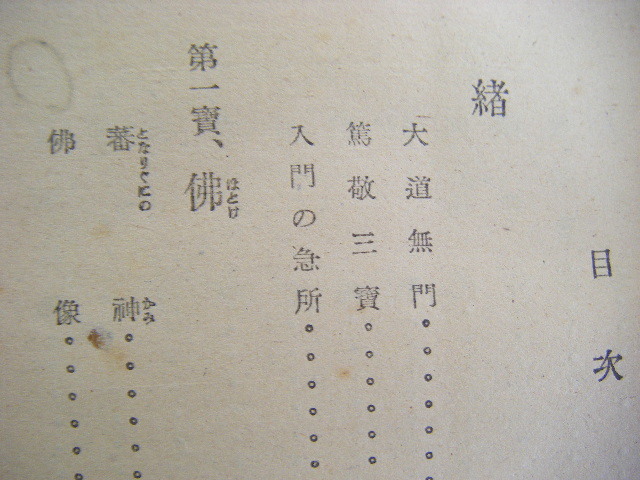 目次
緒
大道無門。。。。
篤敬三寶。。。。
入門の急所。。。。
第一寶、佛
ほとけ
蕃神。。。。
となりぐにの かみ
佛像。。。。